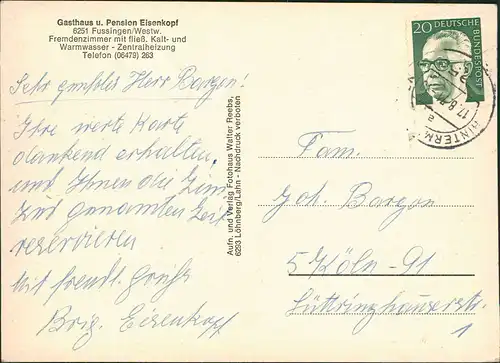 Gasthaus u. Pension Eisenkopf
6251 Fussingen/Westw.
Fremdenzimmer mit fließ. Kalt- und
Warmwasser - Zentralheizung
Telefon (06479) 263
Sehr geehrter Herr Bargon!
Ihre werte Karte
dankend erhalten,
und Ihnen die Zim.
zur genannten Zeit
reservieren
Mit freundl. Gruß
Brig. Eisenkopf
Aufn. und Verlag Fotohaus Walter Reebs,
6293 Löhnberg/Lahn - Nachdruck verboten
20 DEUTSCHE
BUNDESPOST
HINTERM
a
Fam.
Joh. Bargon
5 KÖLN-91
Lüttringhauserstr.
1